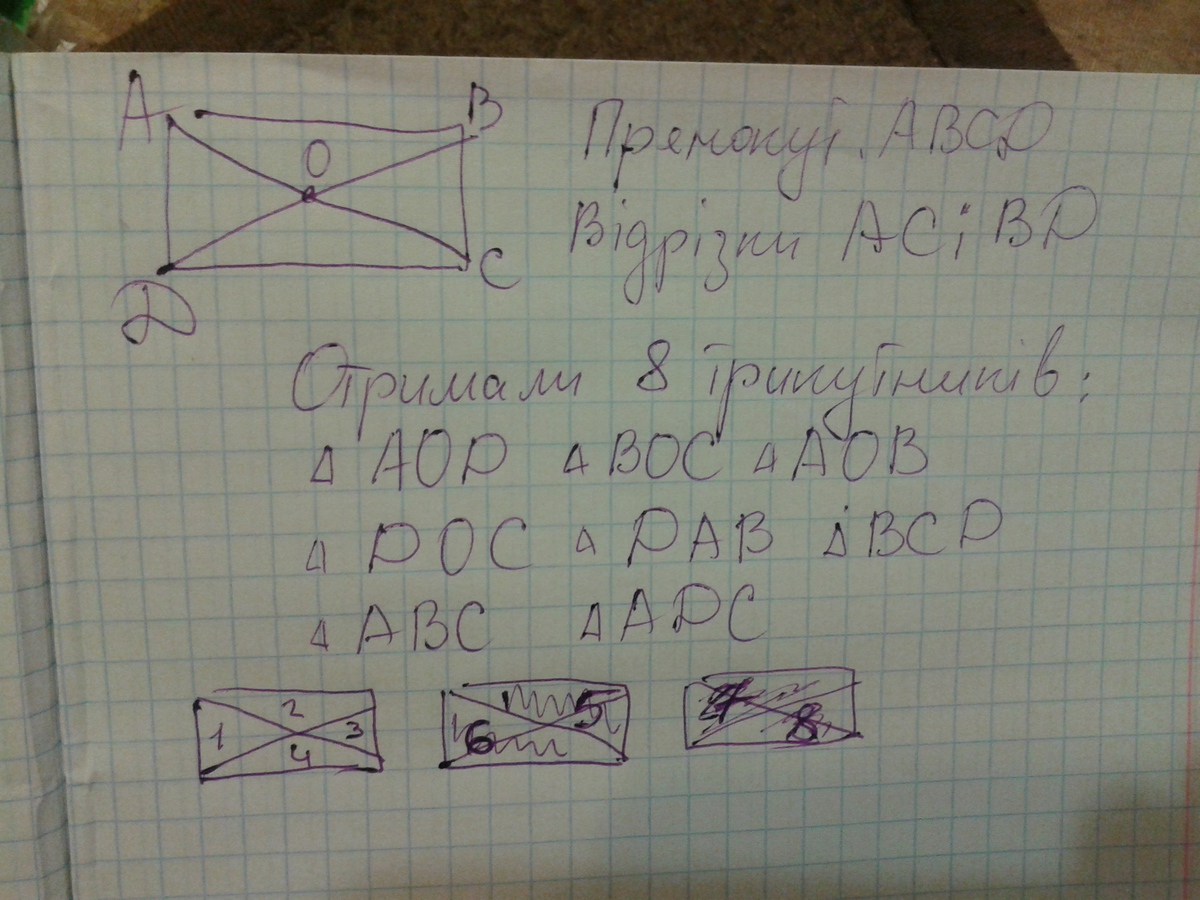 A B
O
Прямокут. ABCD
D C
Відрізки AC і BD
Отримали 8 трикутників:
△ AOD △ BOC △ AOB
△ DOC △ DAB △ BCD
△ ABC △ ADC
1 2 3 4 6 5 7 8